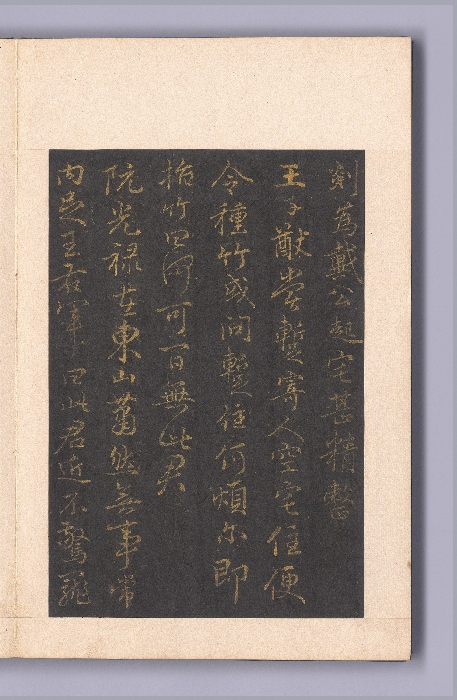 剡為戴公起宅甚精整
王子猷嘗暫寄人空宅住便
令種竹或問暫住何煩爾即
指竹曰何可一日無此君
阮光祿在東山蕭然無事常
內足王右軍曰此君近不驚寵